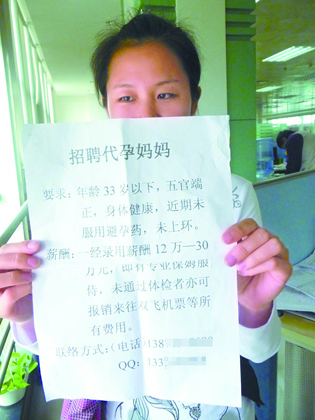 招聘代孕妈妈
要求：年龄33岁以下，五官端
正，身体健康，近期未
服用避孕药，未上环。
薪酬：一经录用薪酬12万—30
万元，即有专业保姆服
侍，未通过体检者亦可
报销来往双飞机票等所
有费用。
联络方式：（电话）138
QQ：133